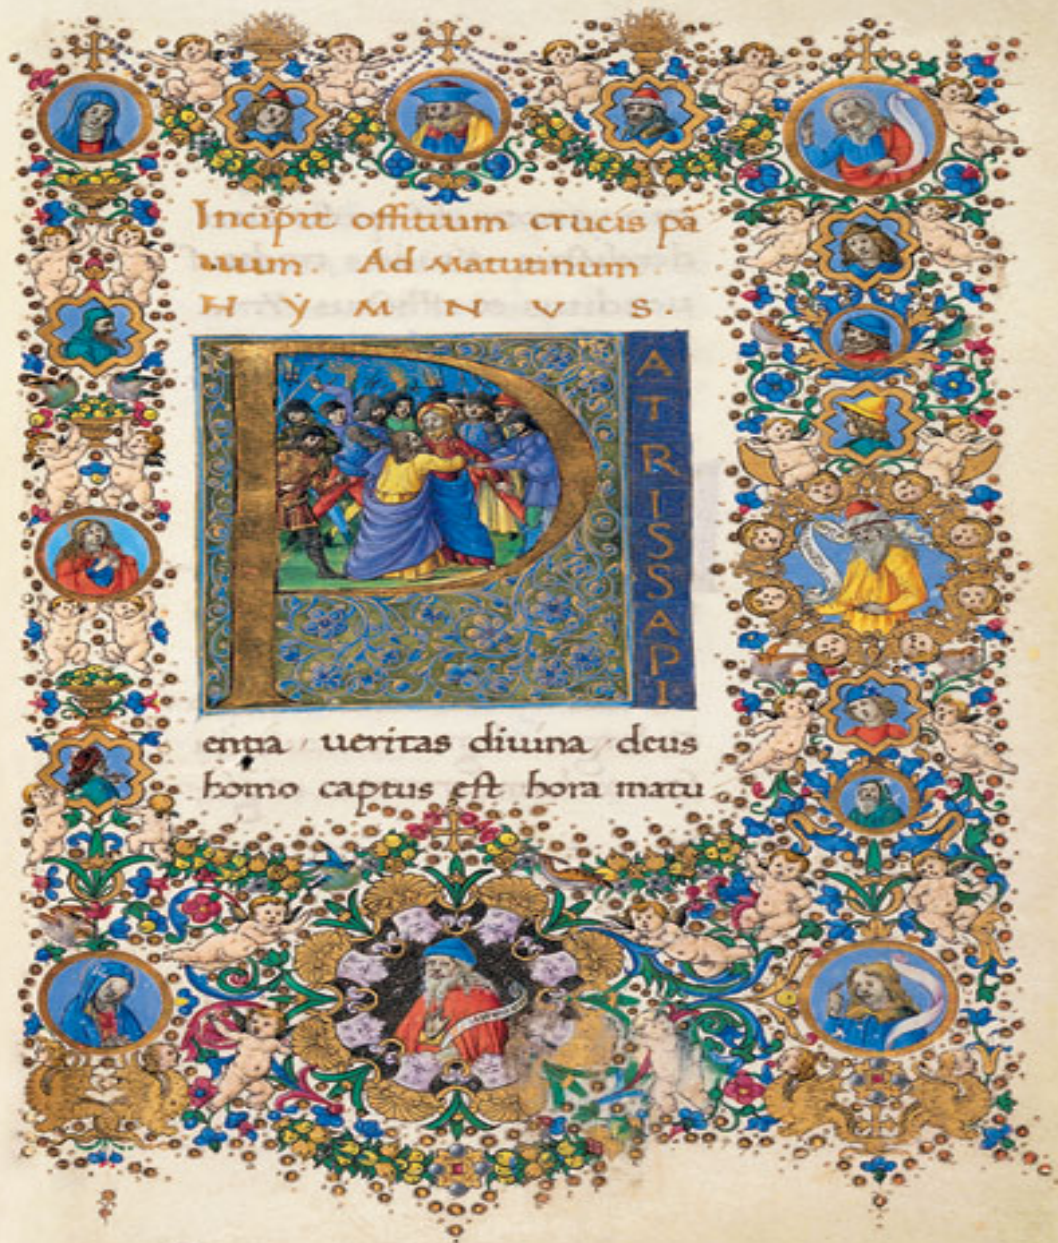 Incipit offitium crucis pā
uum. Ad Matutinum
HYMNVS.
PATRISSAPI
entia ueritas diuina deus
homo captus est hora matu